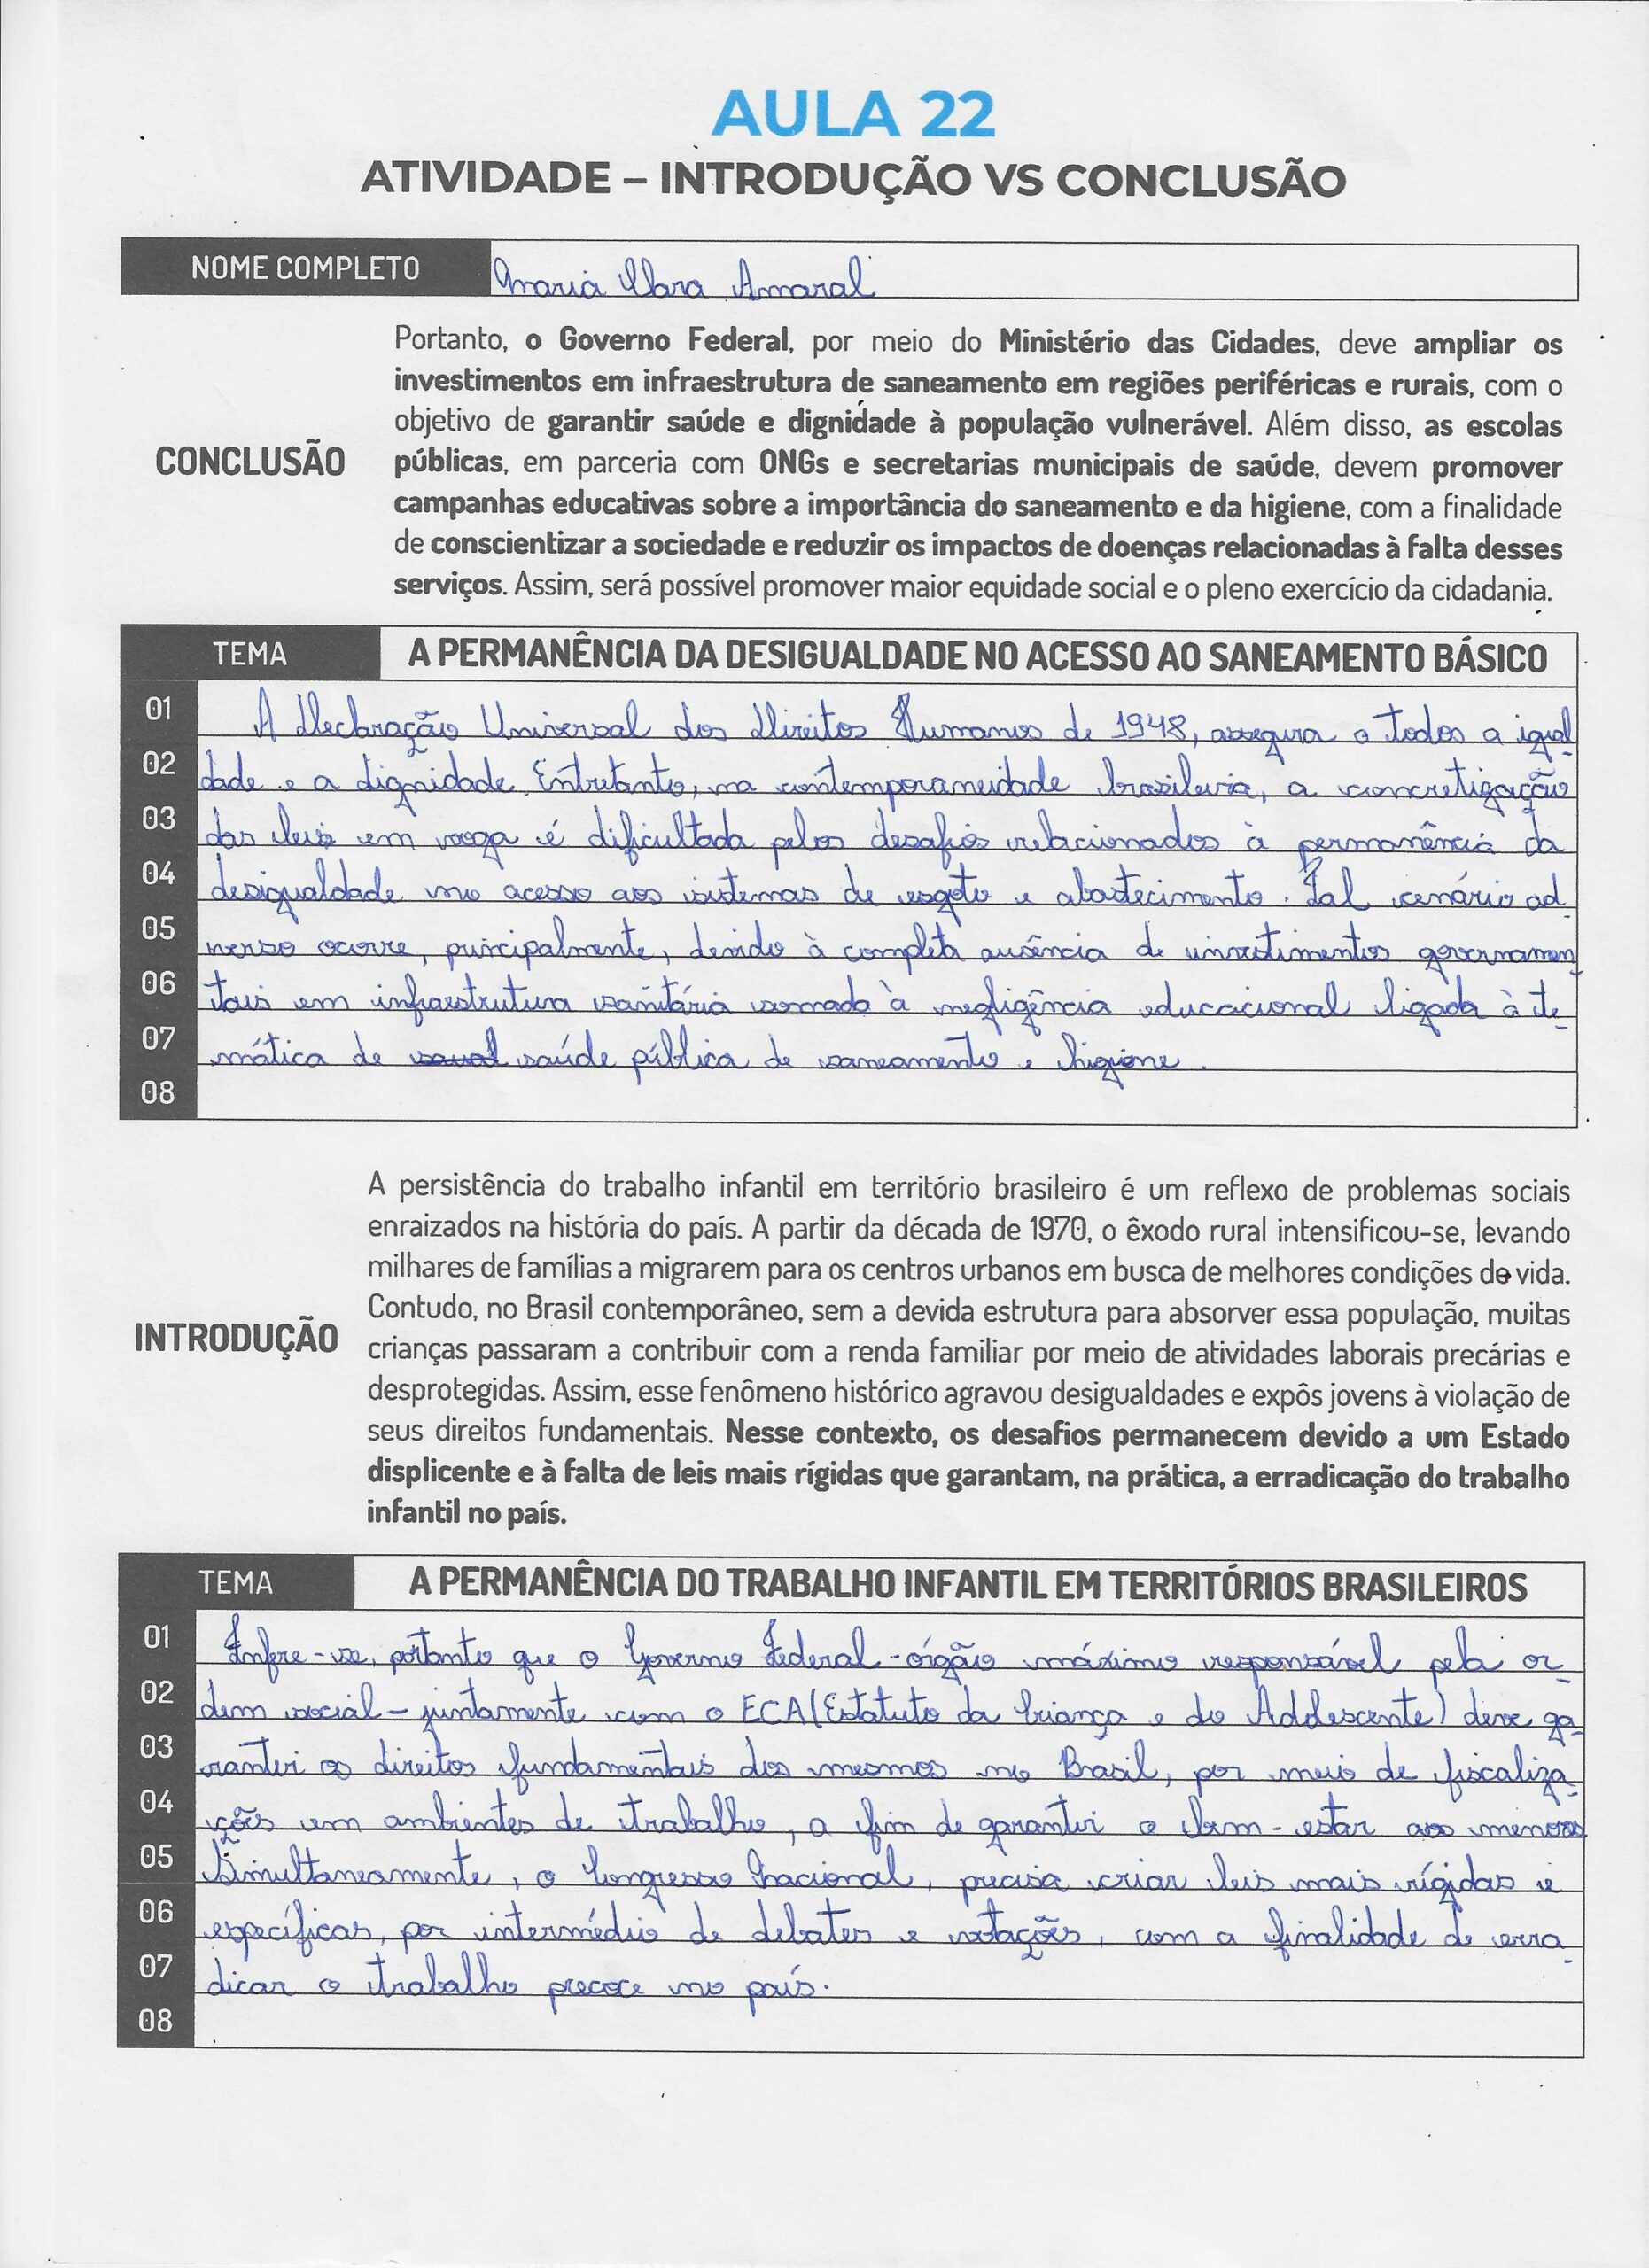 AULA 22
ATIVIDADE – INTRODUÇÃO VS CONCLUSÃO
NOME COMPLETO Maria Clara Amaral
Portanto, o Governo Federal, por meio do Ministério das Cidades, deve ampliar os
investimentos em infraestrutura de saneamento em regiões periféricas e rurais, com o
objetivo de garantir saúde e dignidade à população vulnerável. Além disso, as escolas
CONCLUSÃO públicas, em parceria com ONGs e secretarias municipais de saúde, devem promover
campanhas educativas sobre a importância do saneamento e da higiene, com a finalidade
de conscientizar a sociedade e reduzir os impactos de doenças relacionadas à falta desses
serviços. Assim, será possível promover maior equidade social e o pleno exercício da cidadania.
TEMA A PERMANÊNCIA DA DESIGUALDADE NO ACESSO AO SANEAMENTO BÁSICO
01 A Declaração Universal dos Direitos Humanos de 1948, assegura a todos a igual
02 dade e a dignidade. Entretanto, na contemporaneidade brasileira, a concretização
03 das leis em voga é dificultada pelos desafios relacionados à permanência da
04 desigualdade no acesso aos sistemas de esgoto e abastecimento. Tal cenário ad-
05 verso ocorre, principalmente, devido à completa ausência de investimentos governamen-
06 tais em infraestrutura sanitária somado à negligência educacional ligada à te-
07 mática de saúde pública de saneamento e higiene.
08
A persistência do trabalho infantil em território brasileiro é um reflexo de problemas sociais
enraizados na história do país. A partir da década de 1970, o êxodo rural intensificou-se, levando
milhares de famílias a migrarem para os centros urbanos em busca de melhores condições de vida.
Contudo, no Brasil contemporâneo, sem a devida estrutura para absorver essa população, muitas
INTRODUÇÃO crianças passaram a contribuir com a renda familiar por meio de atividades laborais precárias e
desprotegidas. Assim, esse fenômeno histórico agravou desigualdades e expôs jovens à violação de
seus direitos fundamentais. Nesse contexto, os desafios permanecem devido a um Estado
displicente e à falta de leis mais rígidas que garantam, na prática, a erradicação do trabalho
infantil no país.
TEMA A PERMANÊNCIA DO TRABALHO INFANTIL EM TERRITÓRIOS BRASILEIROS
01 Infere-se, portanto que o Governo Federal - órgão máximo responsável pela or-
02 dem social - juntamente com o ECA (Estatuto da Criança e do Adolescente) deve ga-
03 rantir os direitos fundamentais dos mesmos no Brasil, por meio de fiscaliza-
04 ções em ambientes de trabalho, a fim de garantir o bem-estar aos menores
05 Simultaneamente, o Congresso Nacional, precisa criar leis mais rígidas e
06 específicas, por intermédio de debates e votações, com a finalidade de erra-
07 dicar o trabalho precoce no país.
08